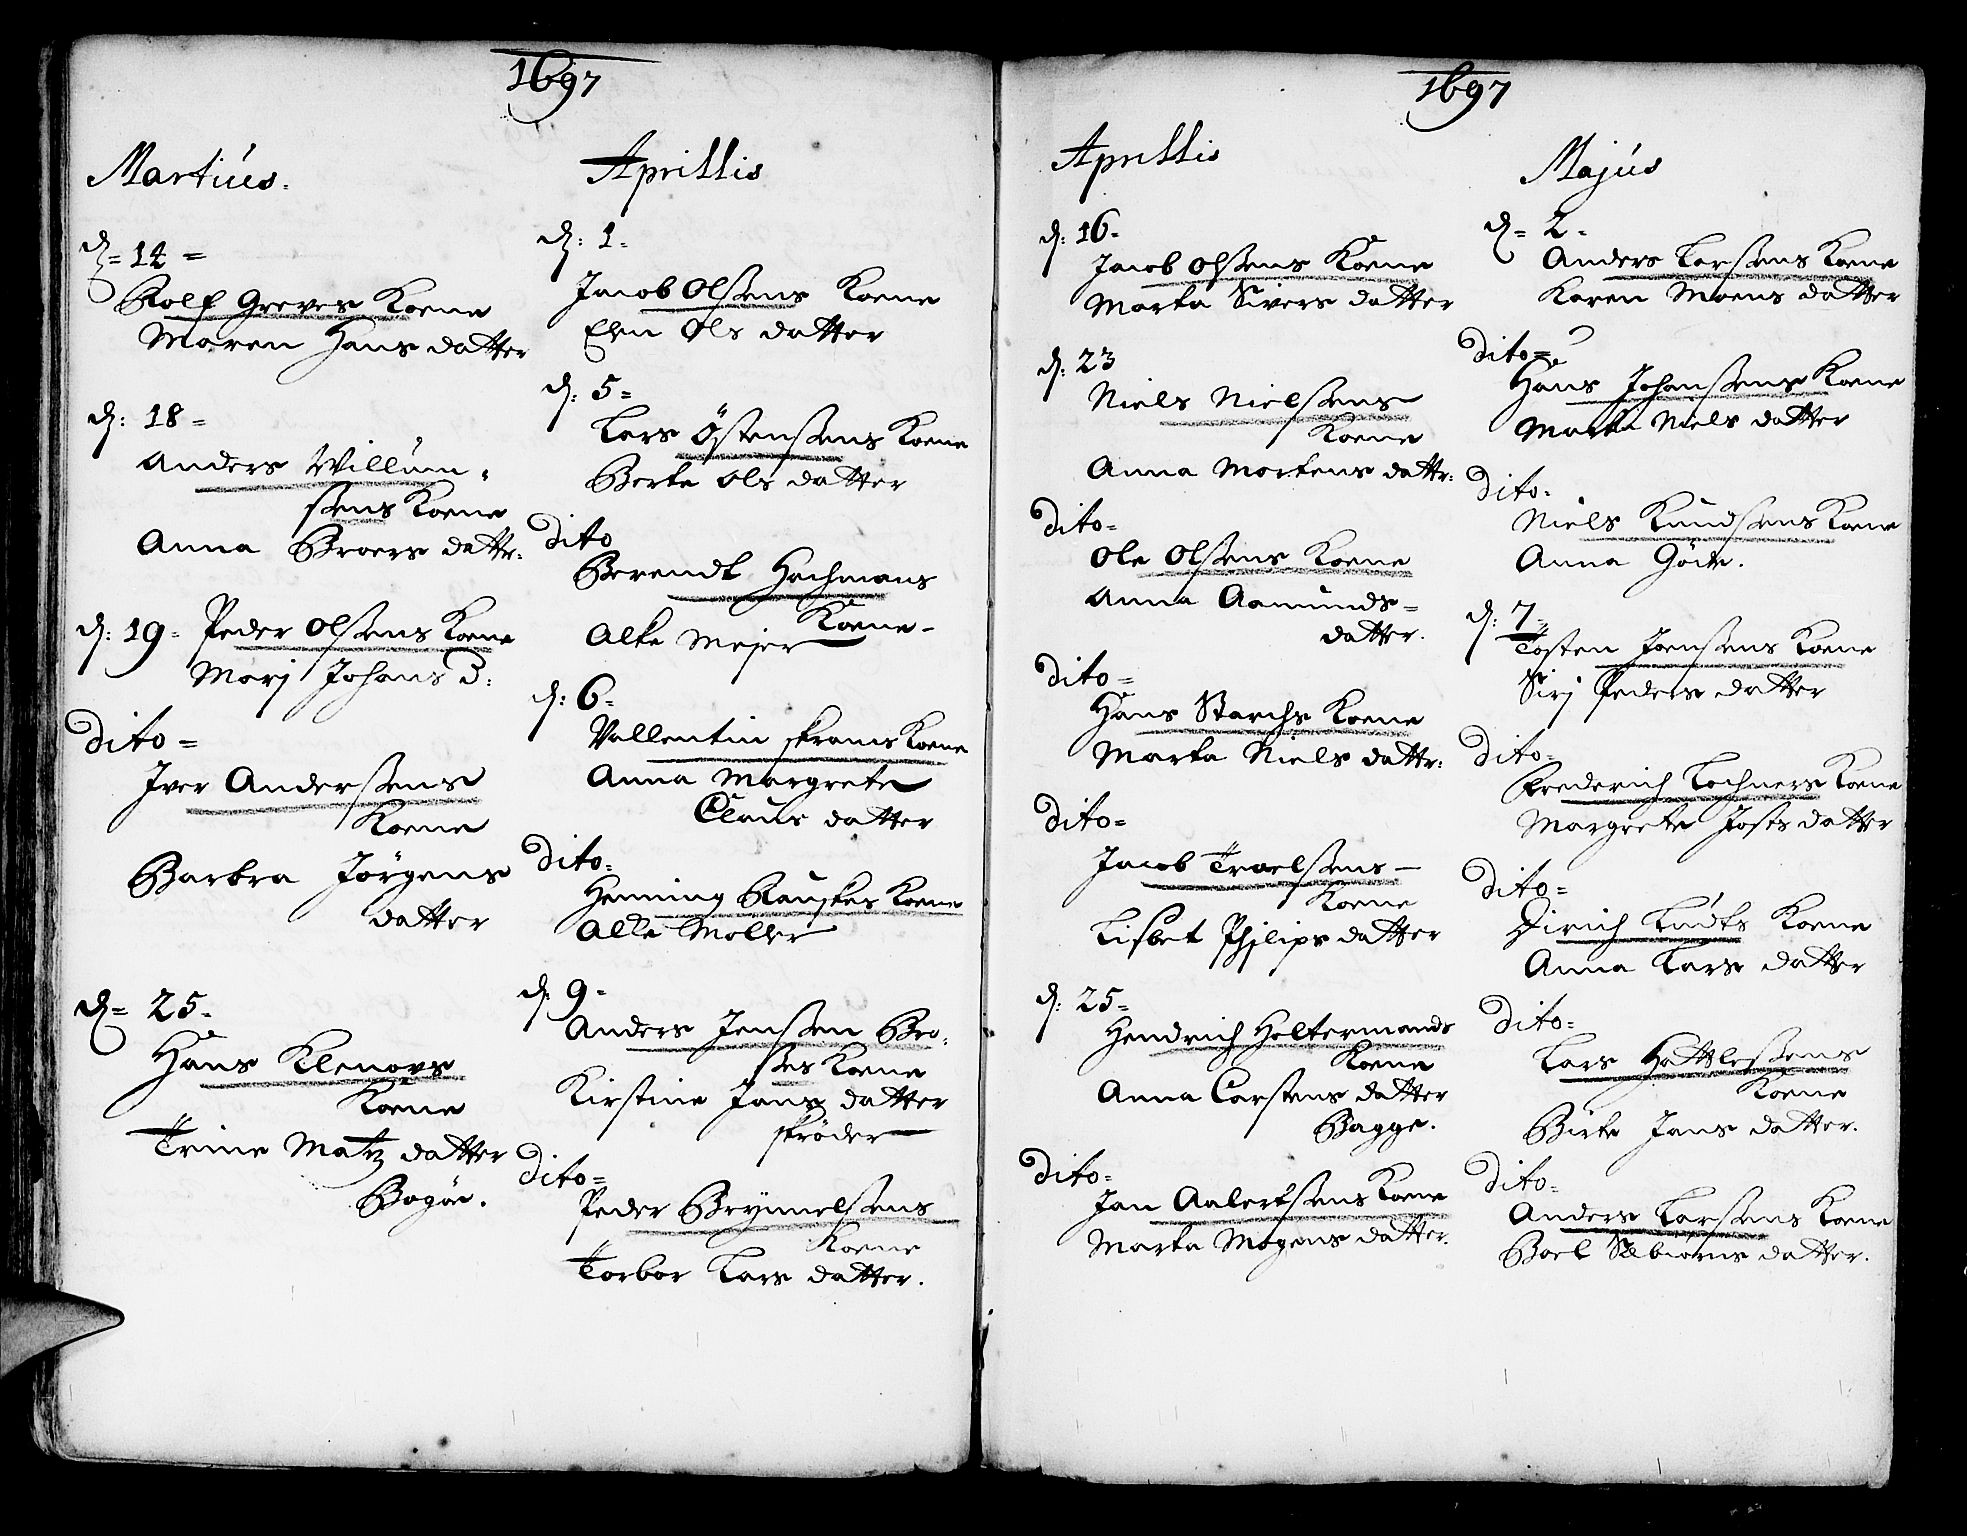 1697
Martius.
d= 14 =
Rolf Greves Koene
Maren Hans datter
d: 18 =
Anders Willum=
sens Koene
Anna Broers dattr:
d: 19 = Peder Olsens Koene
Marj Johans D:
Dito =
Iver Andersens
Koene
Barbra Jörgens
datter
d= 25 =
Hans Klenovs
Koene
Trine Matz datter
Bagöe.
Aprillis
d: 1 =
Jacob Olsens Koene
Elen Ols datter
d: 5 =
Lars Östensens Koene
Berte Ols datter
Dito
Berendt Hachmans
Koene
Alke Mejer
d: 6 =
Vallentin skrams Koene
Anna Margrete
Claus datter
Dito =
Henning Rauskes Koene
Alke Moller
d: 9 =
Anders Jenssen Bro=
ses Koene
Kirstine Jans datter
skröder
Dito =
Peder Brynnelsens
Koene
Torbor Lars datter.
1697
Aprillis
d: 16 =
Jacob Olsens Koene
Marta Sivers datter
d: 23
Niels Nielsens
Koene
Anna Mortens dattr:
Dito =
Ole Olsens Koene
Anna Aamunds=
datter.
Dito =
Hans Starchs Koene
Marta Niels dattr:
Dito =
Jacob Traelsens
Koene
Lisbet Philips datter
d: 25 =
Hendrich Holtermands
Koene
Anna Carstens datter
Bagge.
Dito =
Jan Aalertsens Koene
Marta Mogens datter.
Majus
d= 2 =
Anders Larsens Koene
Karen Moens datter
Dito =
Hans Johansens Koene
Marta Niels datter
Dito =
Niels Knudsens Koene
Anna Göite.
d: 7 =
Tosten Joensens Koene
Sirj Peders datter
Dito =
Frederich Lochners Koene
Margrete Josts datter
Dito =
Dirich Ludts Koene
Anna Lars datter
Dito =
Lars Hattlesens
Koene
Birte Jans datter.
Dito =
Anders Larsens Koene
Boel Sebiorns datter.